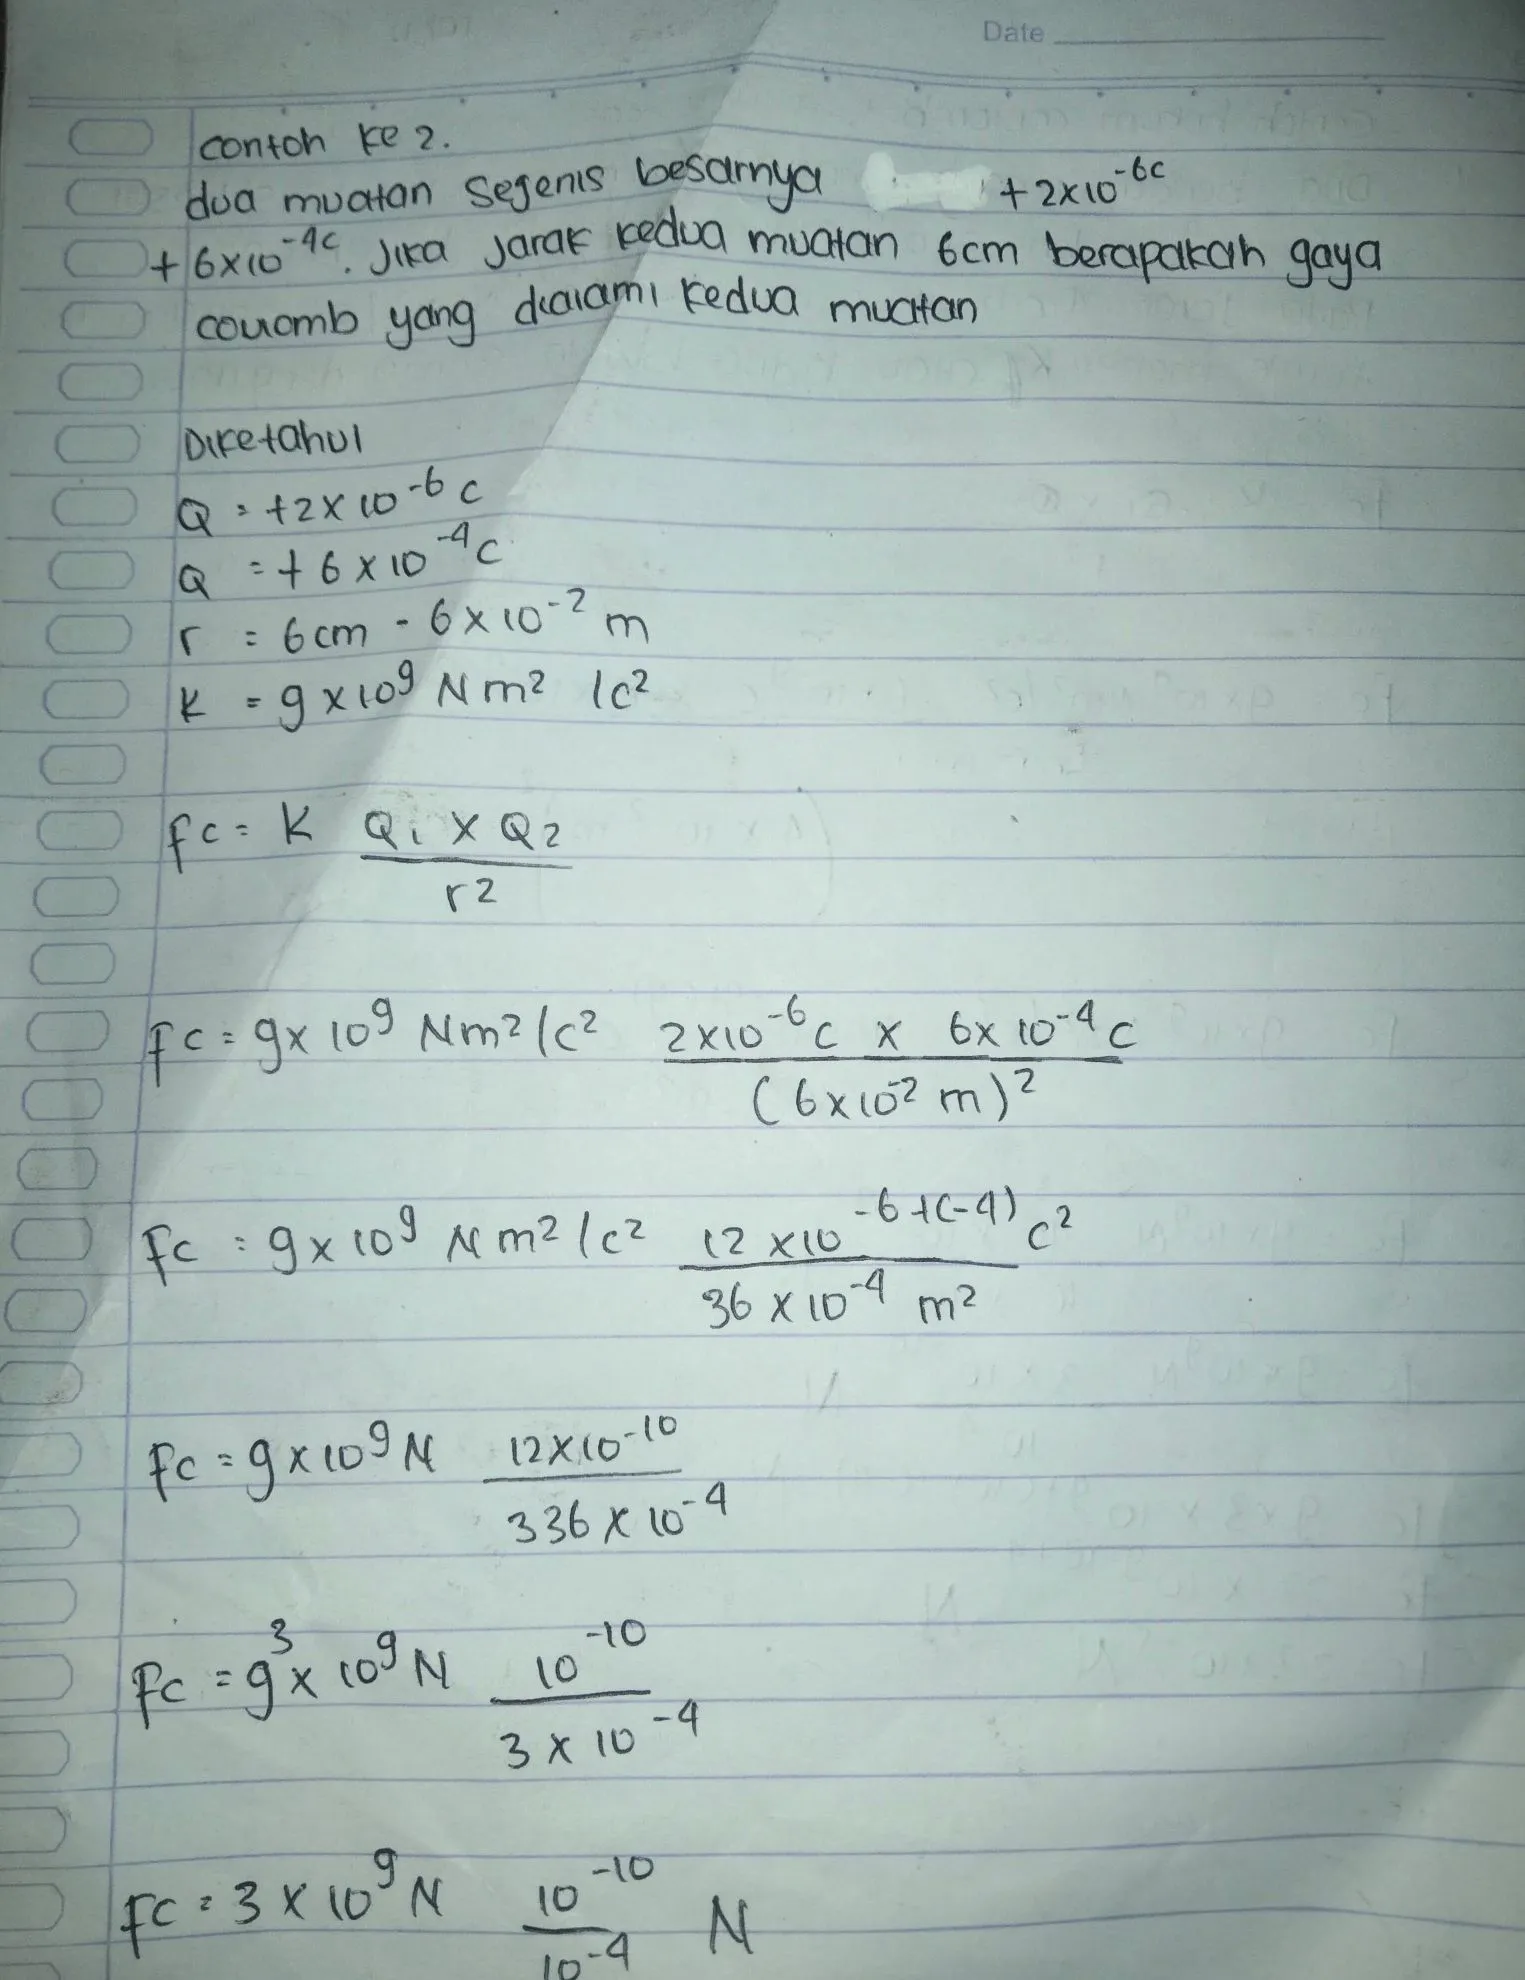 Date
contoh ke 2.
dua muatan sejenis besarnya +2x10⁻⁶ᶜ
+6x10⁻⁴ᶜ. Jika jarak kedua muatan 6cm berapakah gaya
coulomb yang dialami kedua muatan
Diketahui
Q = +2x10⁻⁶ C
Q = +6x10⁻⁴ C
r = 6cm - 6x10⁻² m
K = 9x10⁹ Nm² /C²
Fc = K Q₁ x Q₂
r²
Fc = 9x10⁹ Nm²/C² 2x10⁻⁶C x 6x10⁻⁴ C
(6x10⁻² m)²
Fc = 9x10⁹ Nm²/C² 12x10⁻⁶⁺⁽⁻⁴⁾ C²
36x10⁻⁴ m²
Fc = 9x10⁹ N 12x10⁻¹⁰
336x10⁻⁴
3
Fc = 9x10⁹ N 10⁻¹⁰
3x10⁻⁴
Fc = 3x10⁹ N 10⁻¹⁰ N
10⁻⁴